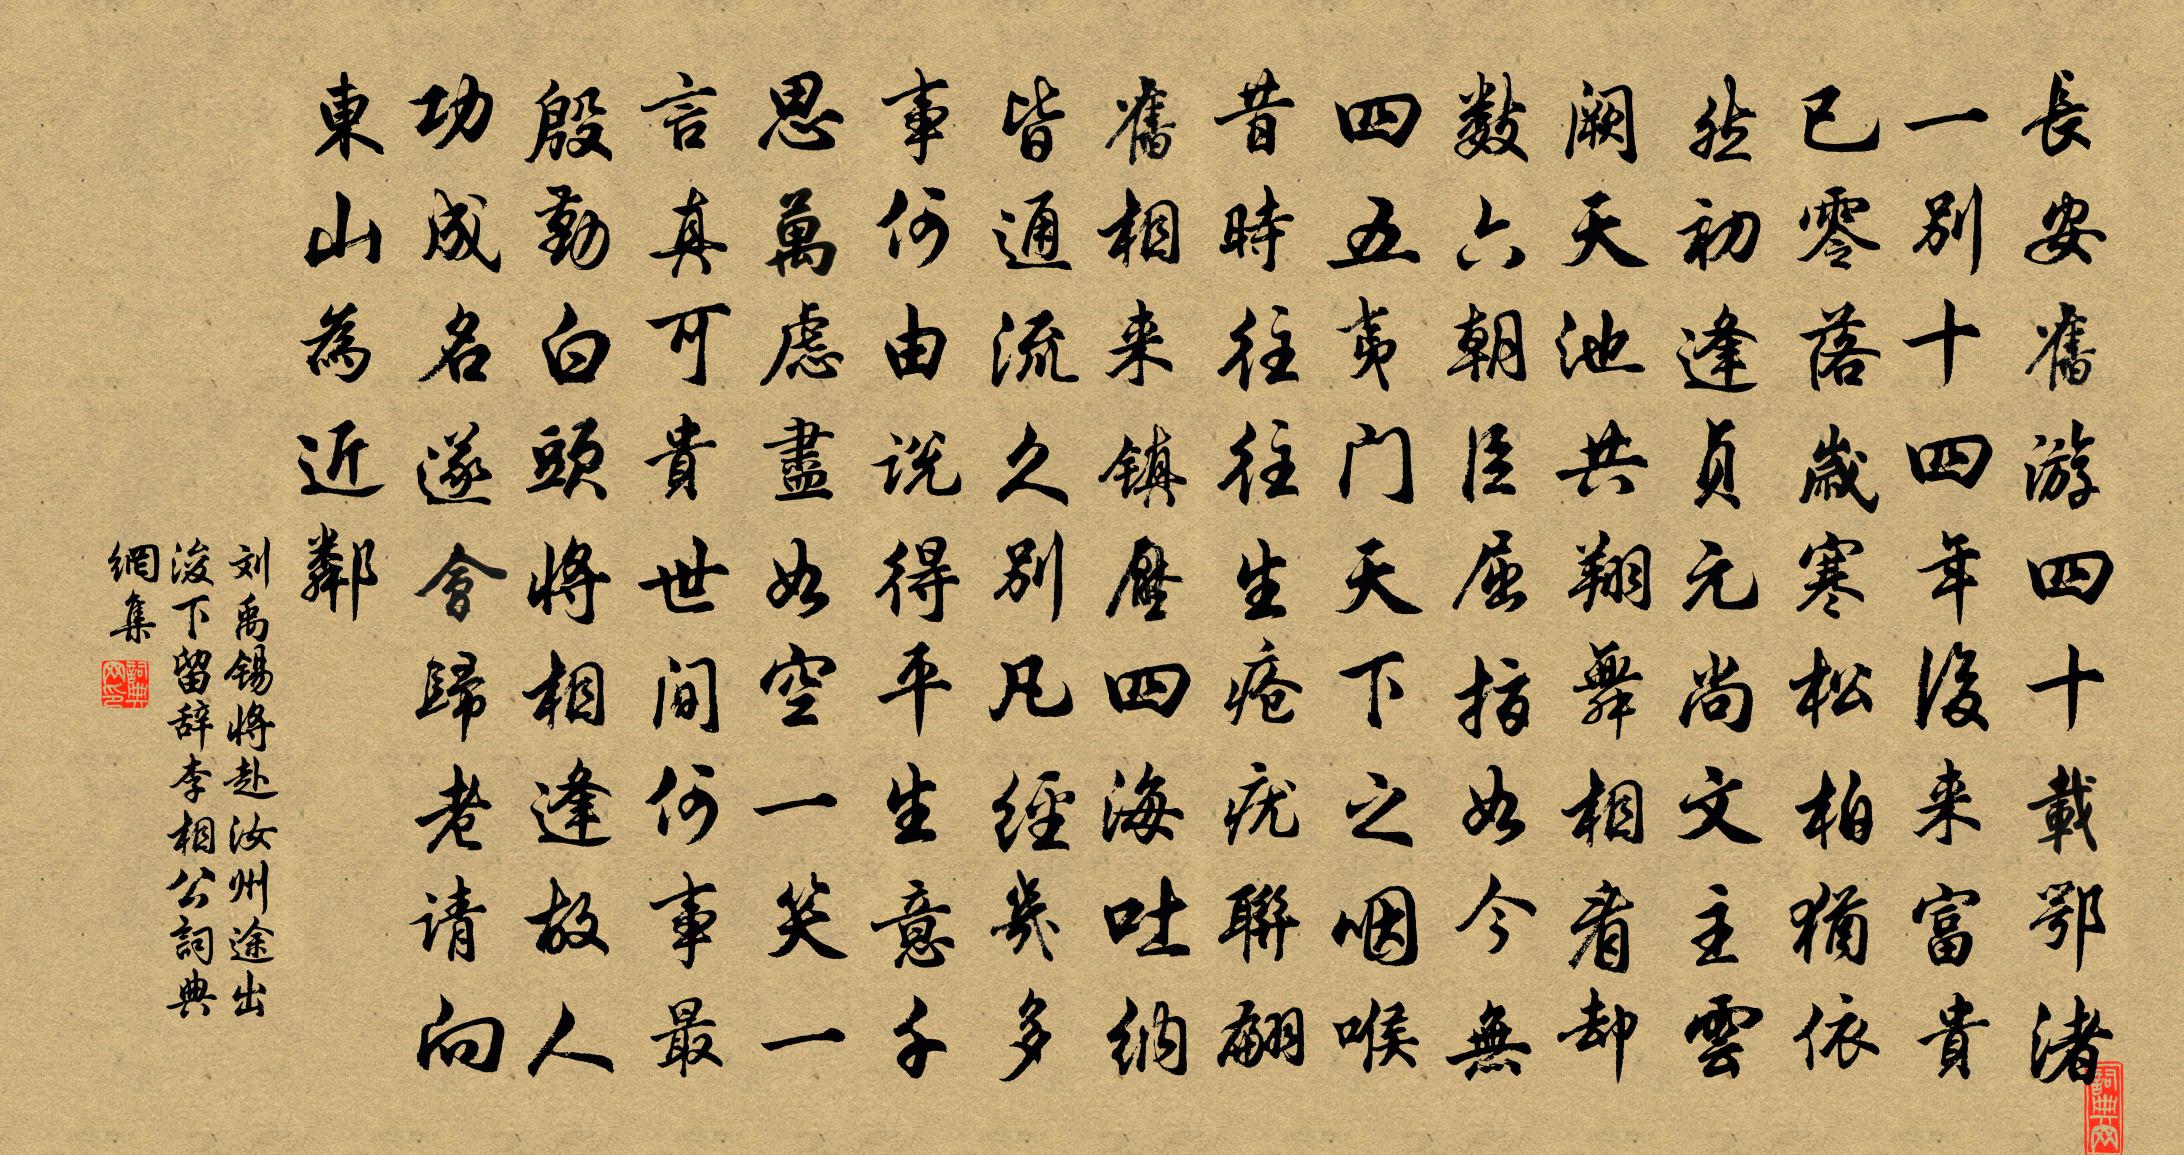 長安舊游四十載鄂渚
一別十四年後来富貴
已零落歲寒松柏猶依
然初逢貞元尚文主雲
闕天池共翔舞相看却
數六朝臣屈指如今無
四五夷门天下之咽喉
昔時往往生疮疣聯翩
舊相来镇壓四海吐纳
皆通流久別凡經幾多
事何由说得平生意千
思萬慮盡如空一笑一
言真可貴世间何事最
殷勤白頭将相逢故人
功成名遂會歸老请向
東山為近鄰
刘禹锡将赴汝州途出
浚下留辞李相公詞典
網集
詞典网印
詞典网